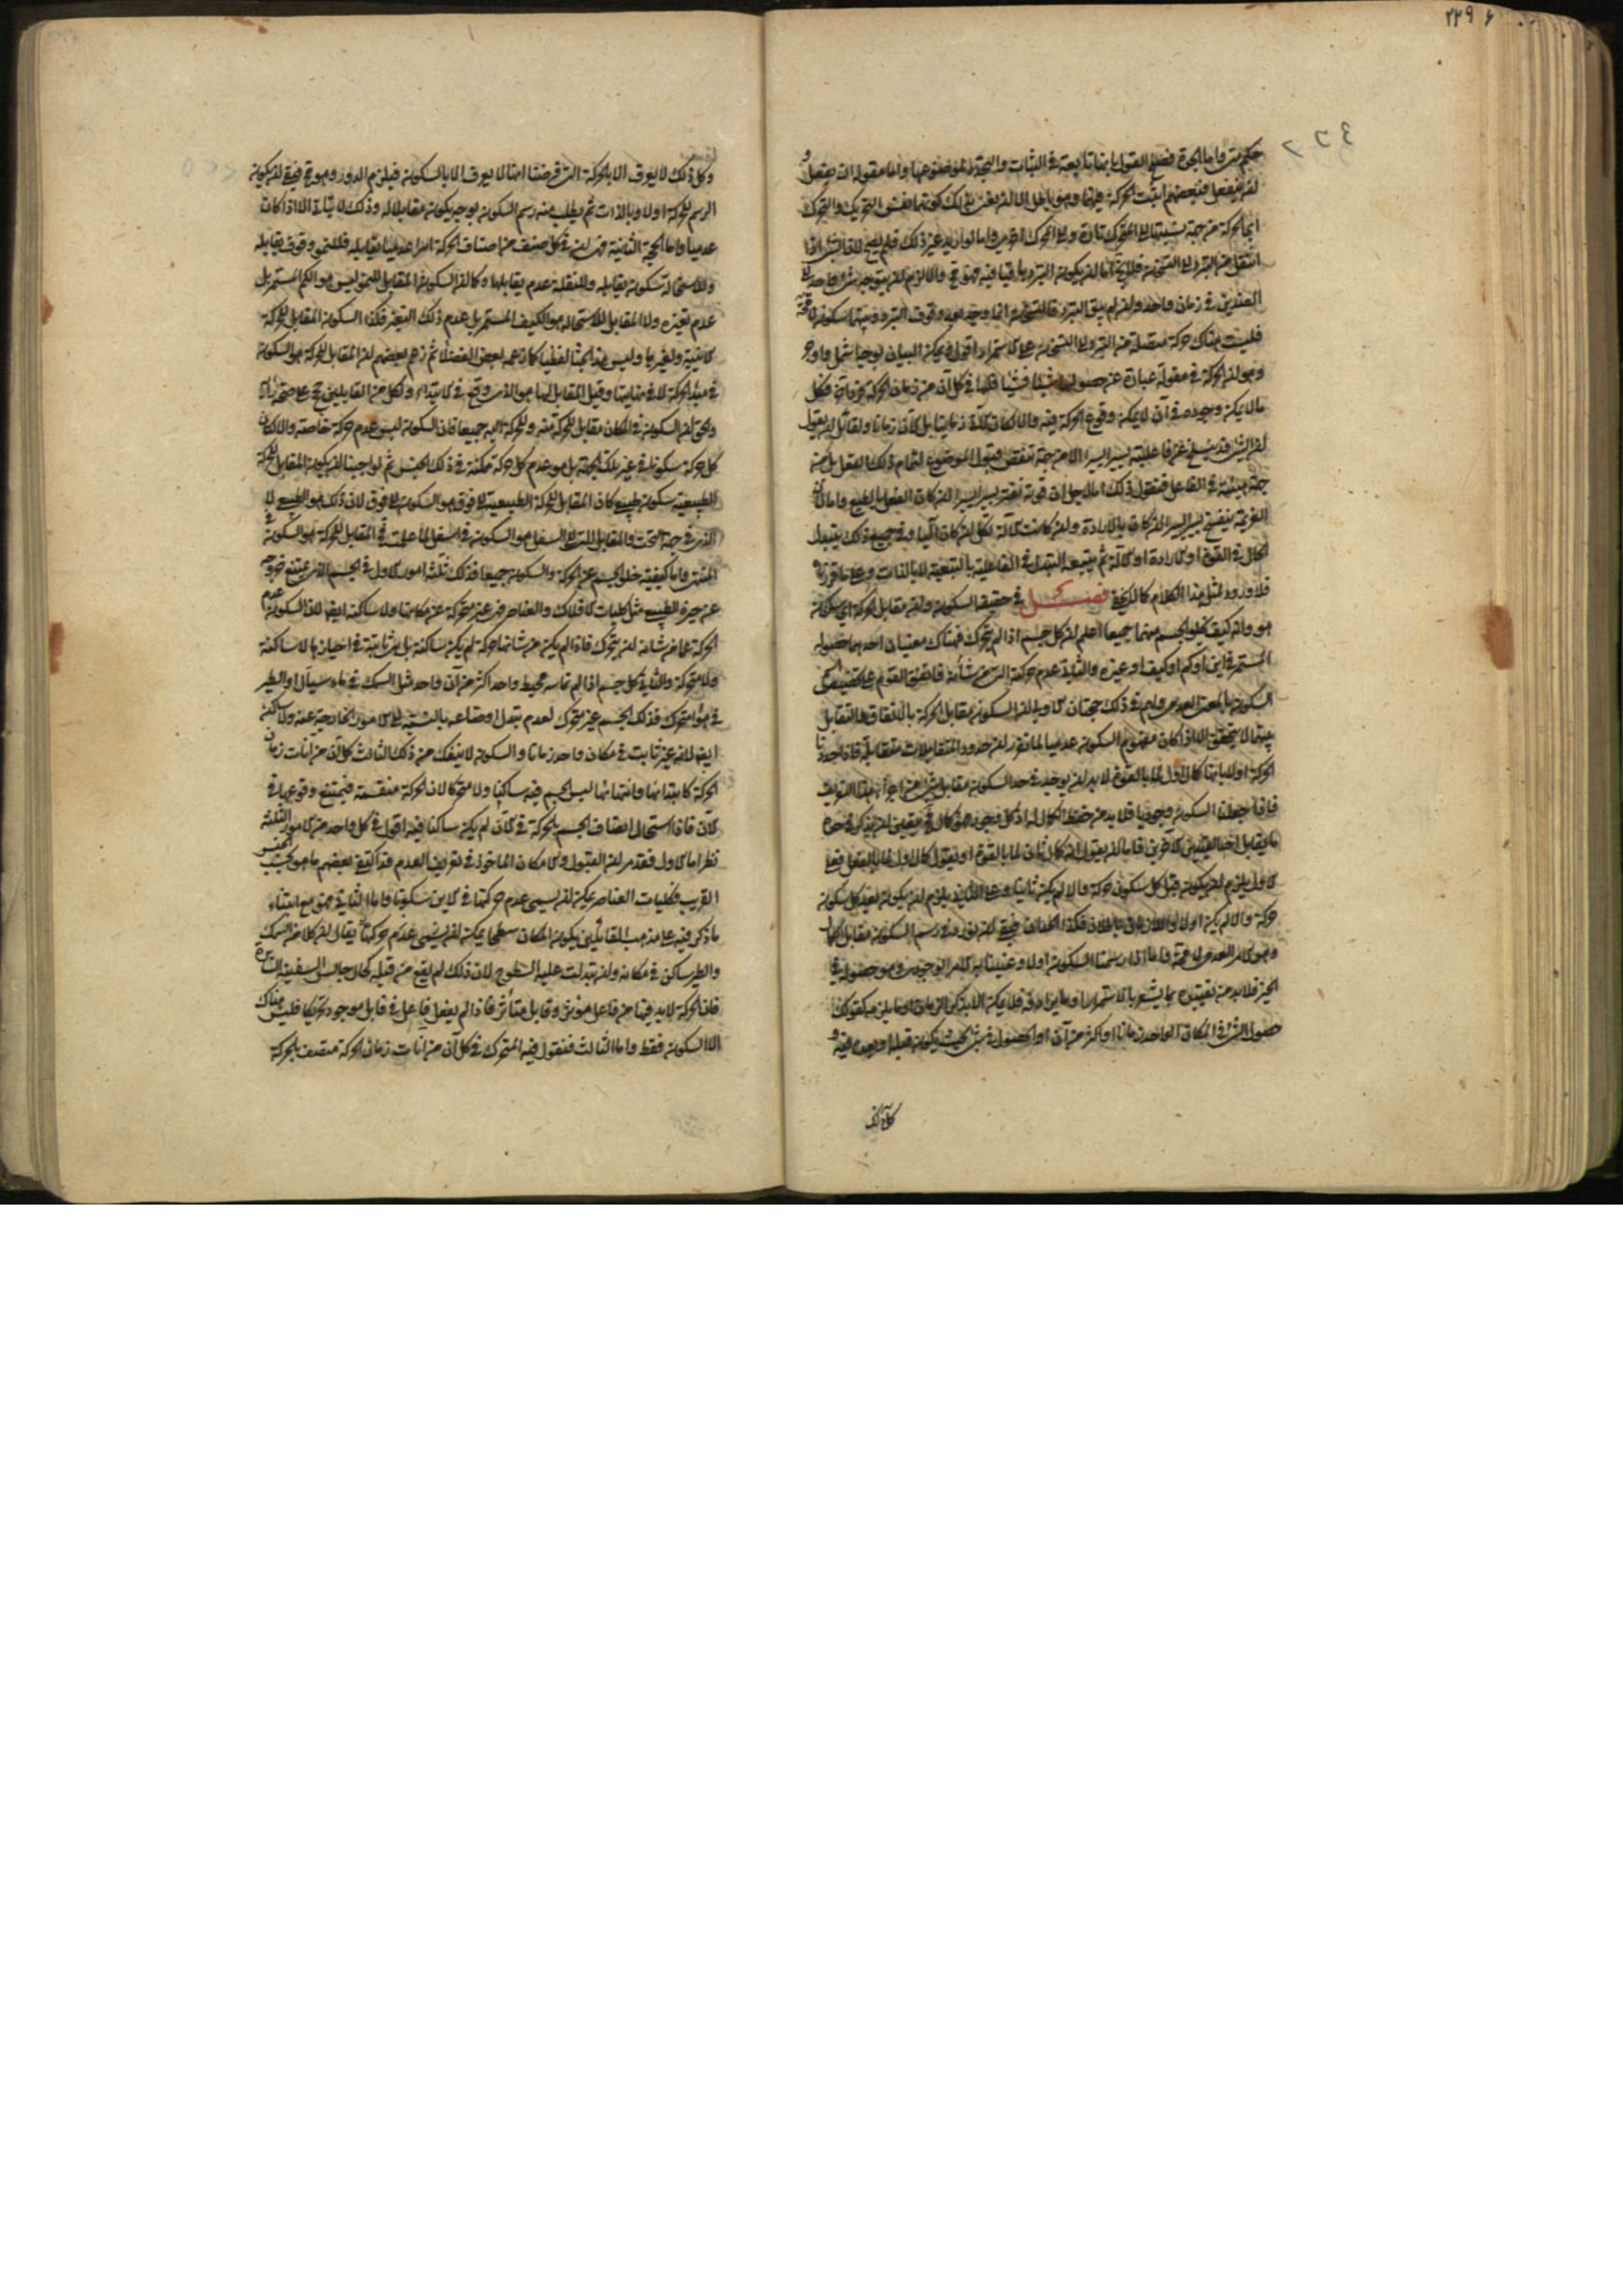 ٢٢٩
حكم متى واما الجدة فصح القول بانها تابعة في الثبات والتجدد لموضوعها واما مقولة ان يفعل و
ان ينفعل فبعضهم اثبت الحركة فيهما وهو باطل الا ان يعنى بذلك
انما الحركة من جهة نسبتها الى المحرك تارة والى المتحرك اخرى واما لو اريد غير ذلك فلم يصح لان الشئ اذا
انتقل من التبرد الى التسخن فلا يخ اما ان يكون التبرد باقيا فيه فهو مح والا لزم ان يتوجه شئ واحد الى
الضدين في زمان واحد وان لم يبق التبرد فالتسخن انما وجد بعد وقوف التبرد وبينهما سكون
فليست هناك حركة متصلة من التبرد الى التسخن على الاستمرار اقول ويمكن البيان بوجه اشمل واوجز
وهو ان الحركة في مقولة عبارة عن حصول شيئا فشيئا فلها في كل آن من زمان الحركة فرد آخر فكل
مالا يمكن وجوده في آن لا يمكن وقوع الحركة فيه والا لكان زمانيا بل لآن زمانا ولقائل ان يقول
ان الشئ قد ينسلخ عن فاعليته يسيرا يسيرا لا من جهة تنقص قبول الموضوع لتمام ذلك الفعل بل من
جهة هيئته في الفاعل فنقول ذلك اما لاجل ان قوته تفتر يسيرا يسيرا ان كان الفعل بالطبع واما لان
العزيمة تنفسخ يسيرا يسيرا ان كان بالارادة واما كانت الآلة تكل ان كان آليا وفي جميع ذلك يتبدل
الحال في القوة او الارادة او الآلة ثم يتبعه التبدل في الفاعلية بالتبعية لا بالذات
فلا ورود لمثل هذا الكلام كما لا يخفى فصل في حقيقة السكون وان مقابل الحركة اي سكون
هو وانه كيف يخلو الجسم منهما جميعا اعلم ان كل جسم اذا لم يتحرك فهناك معنيان احدهما حصوله
المستمر في اين او كم او كيف او غيره والثاني عدم حركته التي من شأنه فاتفق القوم على تخصيص
السكون بالمعنى العدمي ولهم في ذلك حجتان الاولى ان السكون مقابل الحركة بالاتفاق والتقابل
بينهما لا يتحقق الا اذا كان مفهوم السكون عدميا لما تقرر ان حدود المتقابلات متقابلة فاذا حددنا
الحركة اولا بانها كمال اول لما بالقوة لا بد ان يوجد في حد السكون مقابل شئ من اجزاء هذا التعريف
فاذا جعلنا السكون وجوديا فلا بد من حفظ الكمال له اذ كل وجود فهو كمال فيتعين ان يذكر في حده
ما يقابل احد القيدين الآخرين فاما ان يقول انه كمال ثان لما بالقوة او نقول كمال اول لما بالفعل فعلى
الاول يلزم ان يكون قبل كل سكون حركة والا لم يكن ثانيا وعلى الثاني يلزم ان يكون بعد كل سكون
حركة والا لم يكن اولا فكذا الحدان فبقى ان نورد في رسم السكون مقابل الكمال
وهو الامر العدمي لا محالة فاما اذا رسمنا السكون اولا وعنينا به الامر الوجودي وهو حصوله في
الحيز فلا بد من تقييده بما يشعر بالاستمرار او ما يرادفه فلا يمكن الا بذكر الزمان او ما يلزمه كقولك
حصول الشئ في المكان الواحد زمانا او اكثر من آن او الحصول في شئ بحيث يكون قبله او بعده فيه و
وكل ذلك لا يعرف الا بالحركة التي فرضنا انها لا يعرف الا بالسكون فيلزم الدور وهو مح فبقى ان يكون
الرسم للحركة اولا وبالذات ثم يطلب منه رسم السكون بوجه يكون مقابلا له وذلك لا يتأتى الا اذا كان
عدميا واما الحجة الثانية فهي ان في كل صنف من اصناف الحركة امرا عدميا يقابله فللنمو وقوف يقابله
وللاستحالة سكون يقابله وللنقلة عدم يقابلها وكما ان السكون المقابل للنمو ليس هو الكم المستمر بل
عدم تغيره ولا المقابل للاستحالة هو الكيف المستمر بل عدم ذلك التغير فكذا السكون المقابل للحركة
الاينية ولغيرها وليس هذا بحثا لفظيا كما زعمه بعض الفضلا ثم زعم بعضهم ان المقابل للحركة هو السكون
في مبدأ الحركة لا في نهايتها وقيل المقابل لها هو الذي وقع في الابتداء ولكل من القائلين حجج على صحة رأيه
والحق ان السكون في المكان مقابل للحركة منه وللحركة اليه جميعا فان السكون ليس عدم حركة خاصة والا لكان
كل حركة سكونا في غير تلك الجهة بل هو عدم كل حركة ممكنة في ذلك الجنس ثم لو اوجبنا ان يكون المقابل للحركة
الطبيعية سكون طبيعي كان المقابل للحركة الطبيعية الى فوق هو السكون الى فوق لان ذلك هو الطبيعي لا
الذي في جهة التحت والمقابل للتي الى السفل هو السكون في اسفل لما علمت في المقابل للحركة هو السكون في
المنتهى واما كيفية خلو الجسم عن الحركة والسكون جميعا فذلك ثلثة امور الاول في الجسم الذي يمتنع خروجه
عن حيزه الطبيعي مثل كليات الافلاك والعناصر فهي غير متحركة عن مكانها ولا ساكنة ايضا لان السكون عدم
الحركة عما من شانه ان يتحرك فاذا لم يكن من شانها حركة لم يكن ساكنة بل هي ثابتة في احيازها لا ساكنة
ولا متحركة والثاني كل جسم اذا لم تماسه محيط واحد اكثر من آن واحد مثل السمك في ماء سيال او الطير
في هواء متحرك فذلك الجسم غير متحرك لعدم تبدل اوضاعه بالنسبة الى الامور الخارجة عنه ولا ساكن
ايضا لانه غير ثابت في مكان واحد زمانا والسكون لا ينفك من ذلك الثالث كل آن من آنات زمان
الحركة كابتدائها وانتهائها ليس الجسم فيه ساكنا ولا متحركا لان الحركة منقسمة فيمتنع وقوعها في
الآن فاذا استحال اتصاف الجسم بالحركة في الآن لم يكن ساكنا فيه اقول في كل واحد من الامور الثلثة
نظر اما الاول فقد مر ان القبول والامكان الماخوذ في تعريف العدم قد اكتفى بعضهم ما هو بحسب الجنس
القريب وكليات العناصر يمكن ان يسمى عدم حركتها في الاين سكونا واما الثاني فهو مع ابتناء
ما ذكر فيه على مذهب القائلين بكون المكان سطحا يمكن ان يسمى عدم حركتها يقال ان كلا من السمك
والطير ساكن في مكانه وان تبدلت عليه السطوح لان ذلك لم يقع من قبله كحال جالس السفينة السائرة
فان الحركة لا بد فيها من فاعل مؤثر وقابل متأثر فاذا لم يفعل فاعل في قابل موجود تحريكا فليس هناك
الا السكون فقط واما الثالث فنقول فيه المتحرك في كل آن من آنات زمان الحركة متصف بالحركة